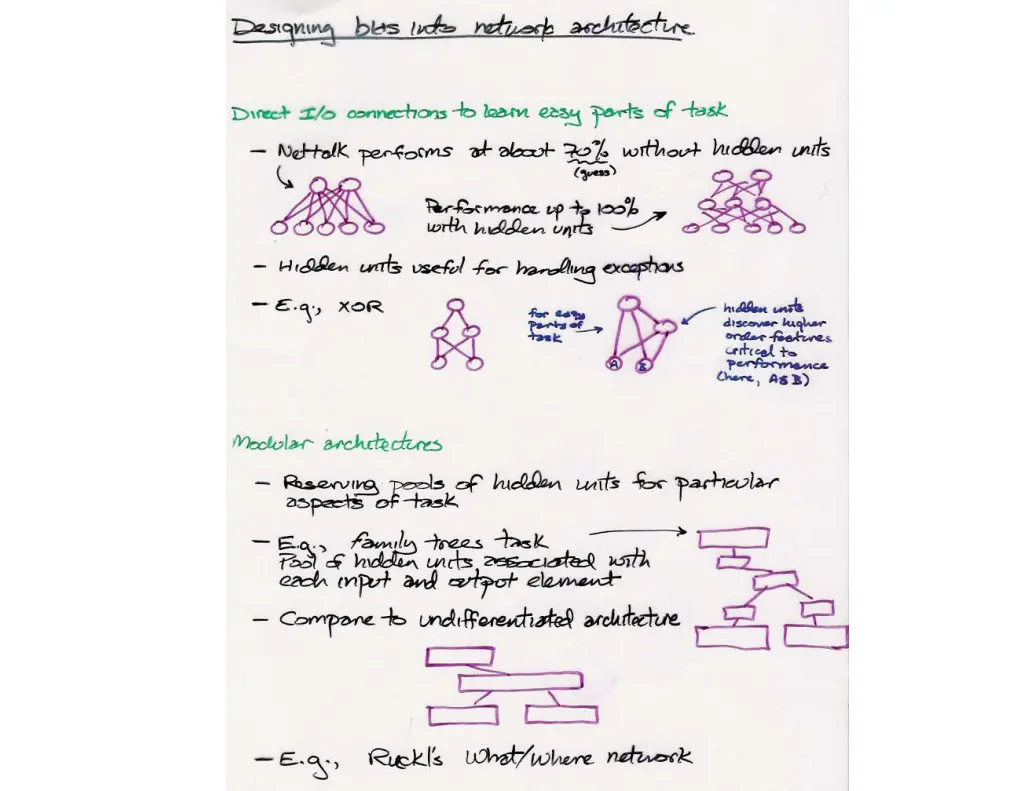 Designing bias into network architecture
Direct I/O connections to learn easy parts of task
— Nettalk performs at about 70% without hidden units
(guess)
Performance up to 100%
with hidden units
— Hidden units useful for handling exceptions
— E.g., XOR
for easy
parts of
task
hidden units
discover higher
order features
critical to
performance
(here, A&B)
A B
Modular architectures
— Reserving pools of hidden units for particular
aspects of task
— E.g., family trees task
Pool of hidden units associated with
each input and output element
— Compare to undifferentiated architecture
— E.g., Rueckl's What/Where network